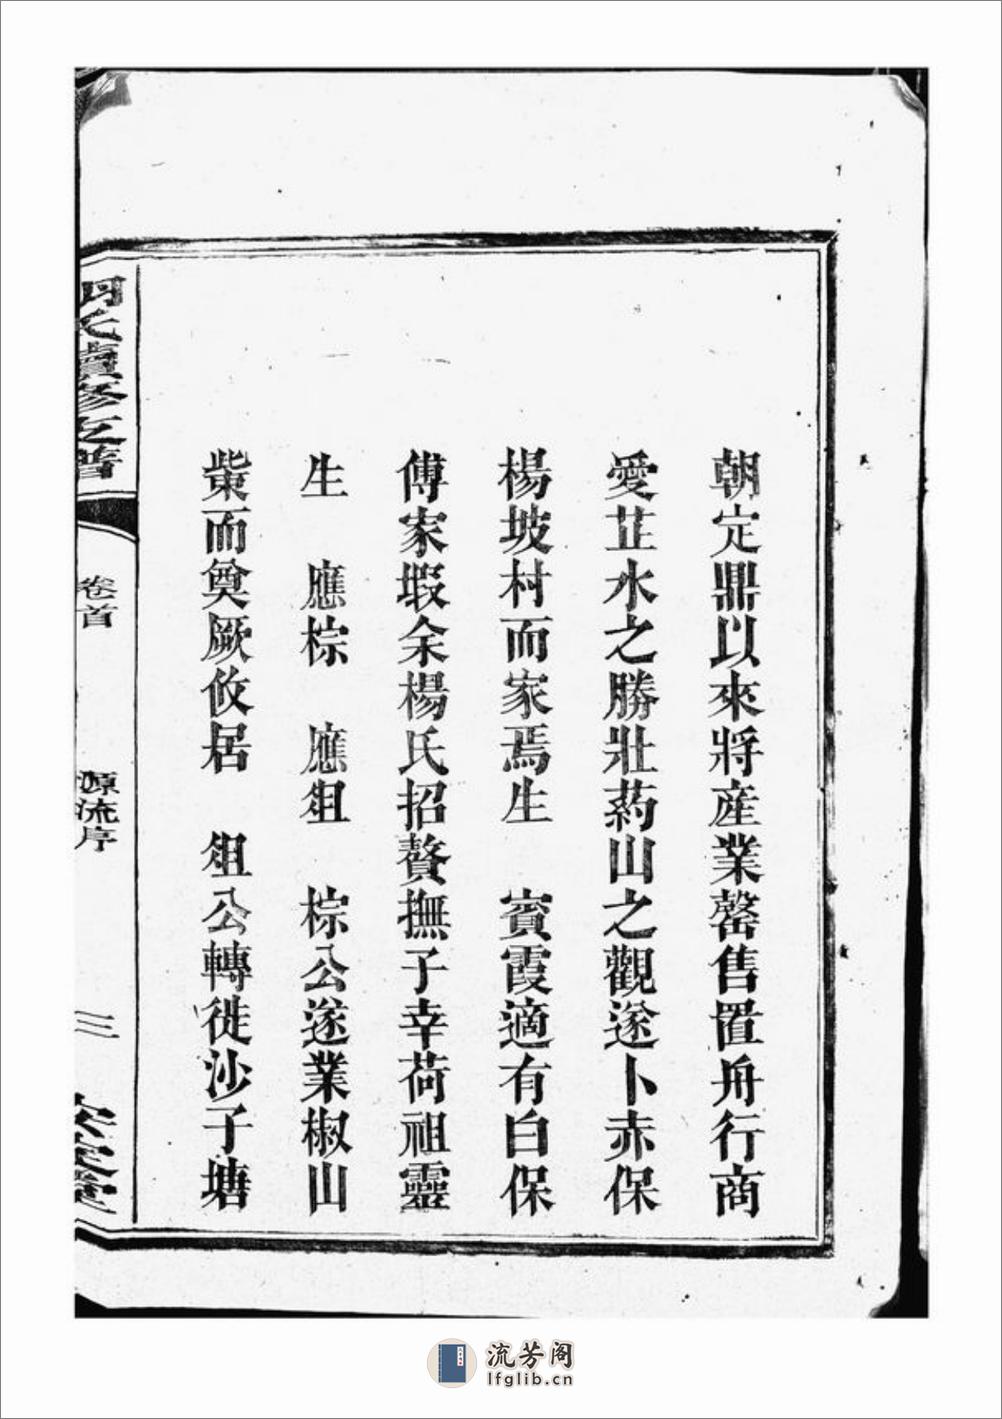 朝定鼎以來將産業罄售置舟行商
愛芷水之勝壯葯山之觀遂卜赤保
楊坡村而家焉生　賓霞適有白保
傅家塅余楊氏招贅撫子幸荷祖靈
生　應棕　應俎　棕公遂業椒山
葉而奠厥攸居　俎公轉徙沙子塘
胡氏續修支譜
卷首
源流序
三
安定堂
流芳阁
lfglib.cn